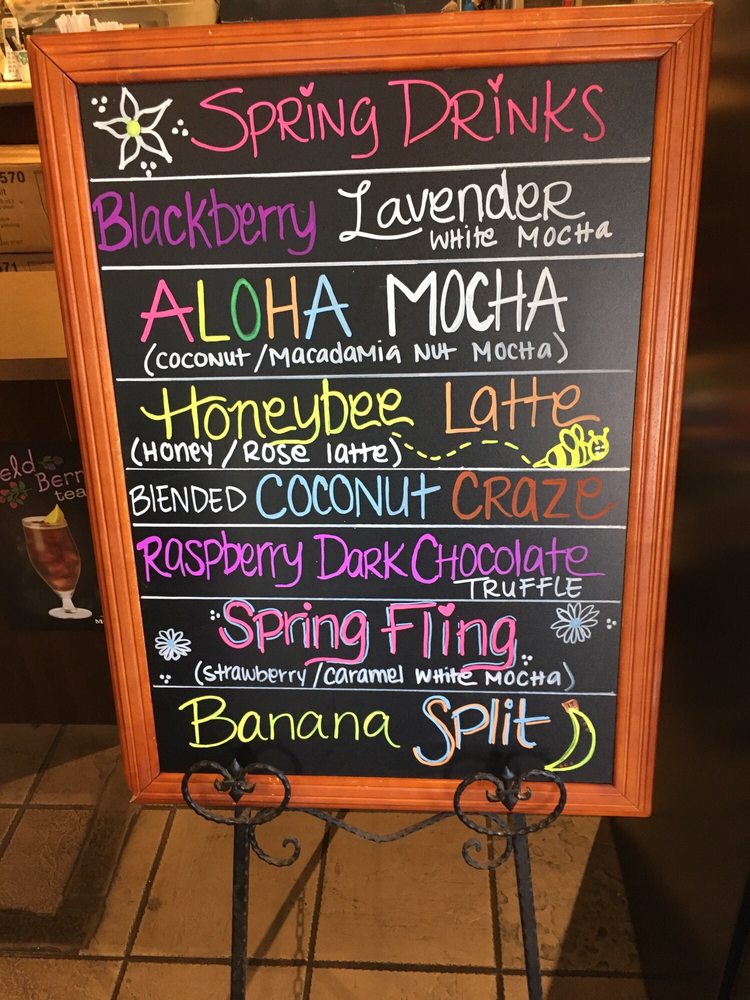 Spring Drinks
Blackberry Lavender
White Mocha
ALOHA MOCHA
(Coconut/Macadamia Nut Mocha)
Honeybee Latte
(Honey/Rose latte)
BLENDED COCONUT CRAZE
Raspberry Dark Chocolate
TRUFFLE
Spring Fling
(Strawberry/Caramel White Mocha)
Banana Split
570
571
eld
Berr
tea